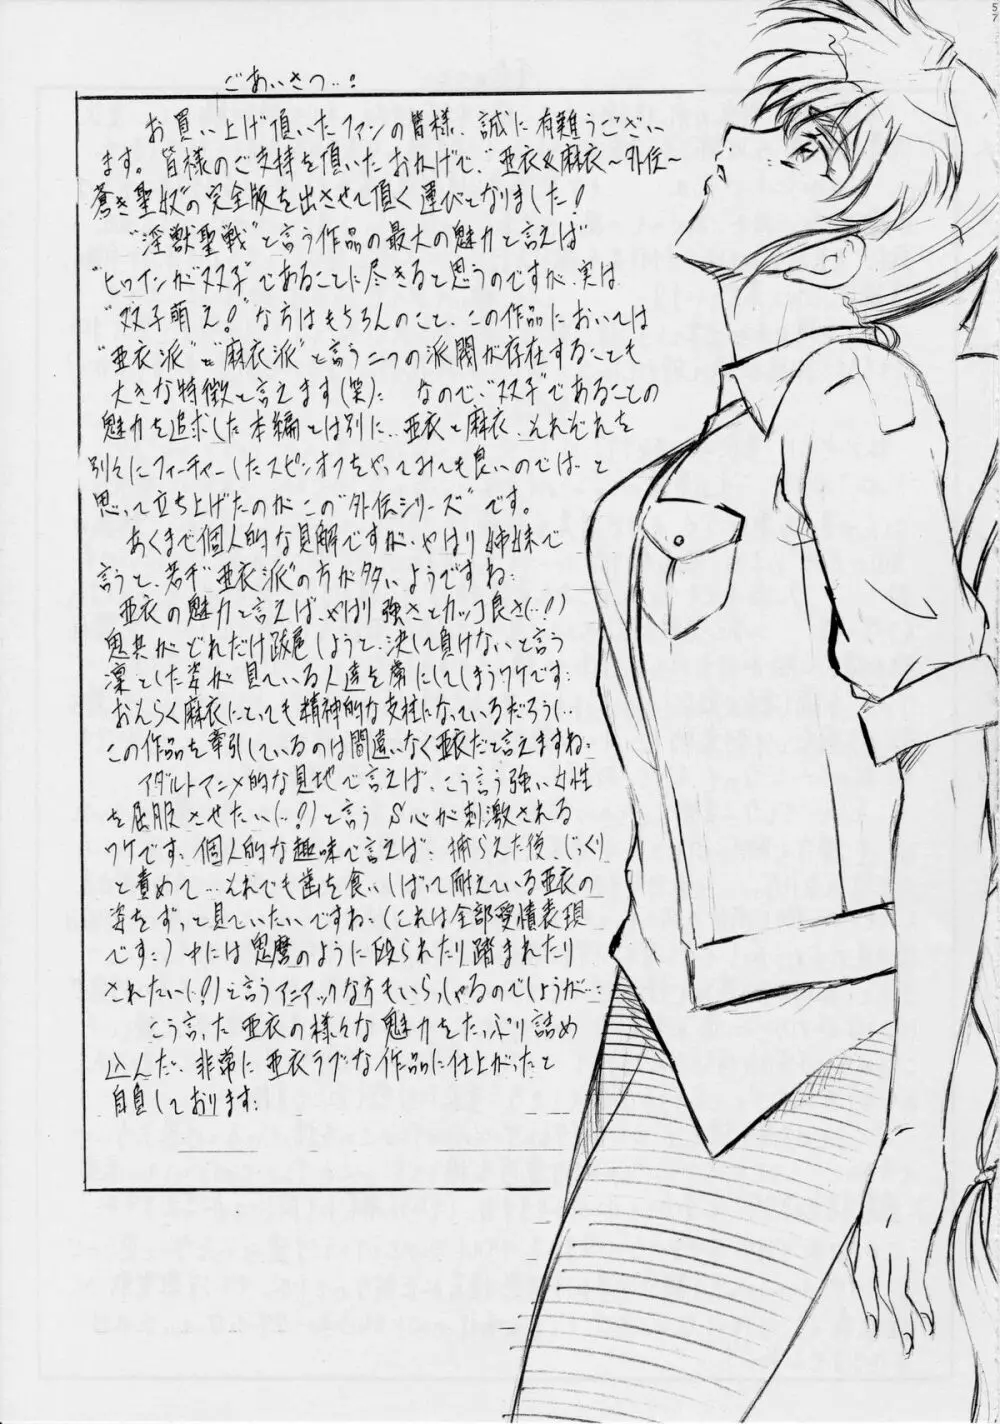 ごあいさつ…!
お買い上げ頂いたファンの皆様、誠に有難うござい
ます。皆様のご支持を頂いたおかげで、"亜衣&麻衣〜外伝〜
蒼き聖奴"の完全版を出させて頂く運びとなりました!
"淫獣聖戦"と言う作品の最大の魅力と言えば
"ヒロインが双子"であることに尽きると思うのですが、実は
"双子萌え!"な方はもちろんのこと、この作品においては
"亜衣派"と"麻衣派"と言う二つの派閥が存在することも
大きな特徴と言えます(笑)… なので、"双子"であることの
魅力を追求した本編とは別に…亜衣と麻衣、それぞれを
別々にフィーチャーしたスピンオフをやってみても良いのでは…と
思って立ち上げたのがこの"外伝シリーズ"です。
あくまで個人的な見解ですが、やはり姉妹で
言うと、若干"亜衣派"の方が多いようですね…
亜衣の魅力と言えば、やはり強さとカッコ良さ(…!)
鬼共がどれだけ凌辱しようと、決して負けないと言う
凛とした姿が見ている人達を虜にしてしまうワケです…
おそらく麻衣にとっても精神的な支柱になっているだろうし…
この作品を牽引しているのは間違いなく亜衣だと言えますね…
アダルトアニメ的な見地で言えば、こう言う強い女性
を屈服させたい(…!?)と言うS心が刺激される
ワケです…個人的な趣味で言えば…捕らえた後、じっくり
と責めて…それでも歯を食いしばって耐えている亜衣の
姿をずっと見ていたいですね…(これは全部愛情表現
です…)中には鬼麿のように殴られたり踏まれたり
されたい(…!?)と言うマニアックな方もいらっしゃるのでしょうが…
こう言った亜衣の様々な魅力をたっぷり詰め
込んだ、非常に亜衣ラブな作品に仕上がったと
自負しております…
57